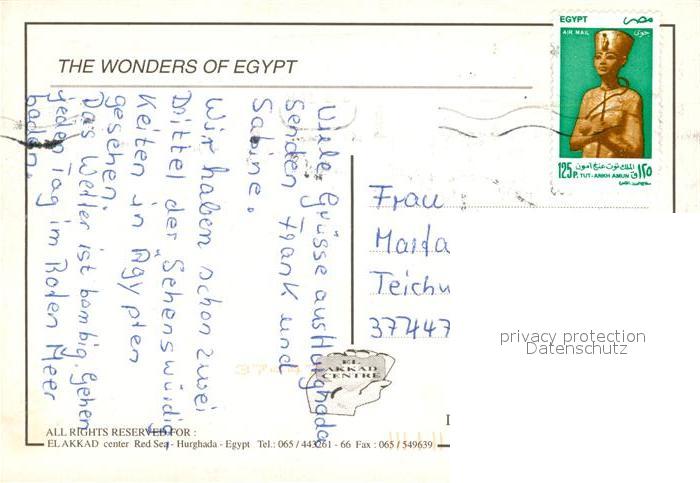 THE WONDERS OF EGYPT
EGYPT مصر
AIR MAIL جوى
الملك توت عنخ آمون
125P. TUT-ANKH AMUN ١٢٥
Viele Grüsse aus Hurghada
senden Frank und
Sabine.
Wir haben schon zwei
Drittel der Sehenswürdig-
keiten in Ägypten
gesehen.
Das Wetter ist bombig. Gehen
jeden Tag im Roten Meer
baden.
Frau
Marta
Teichu
37447
privacy protection
Datenschutz
EL
AKKAD
CENTRE
ALL RIGHTS RESERVED FOR :
EL AKKAD center Red Sea - Hurghada - Egypt Tel.: 065 / 443261 - 66 Fax : 065 / 549639